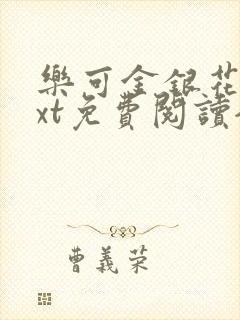 樂可金銀花
xt免費閱讀
曹義荣